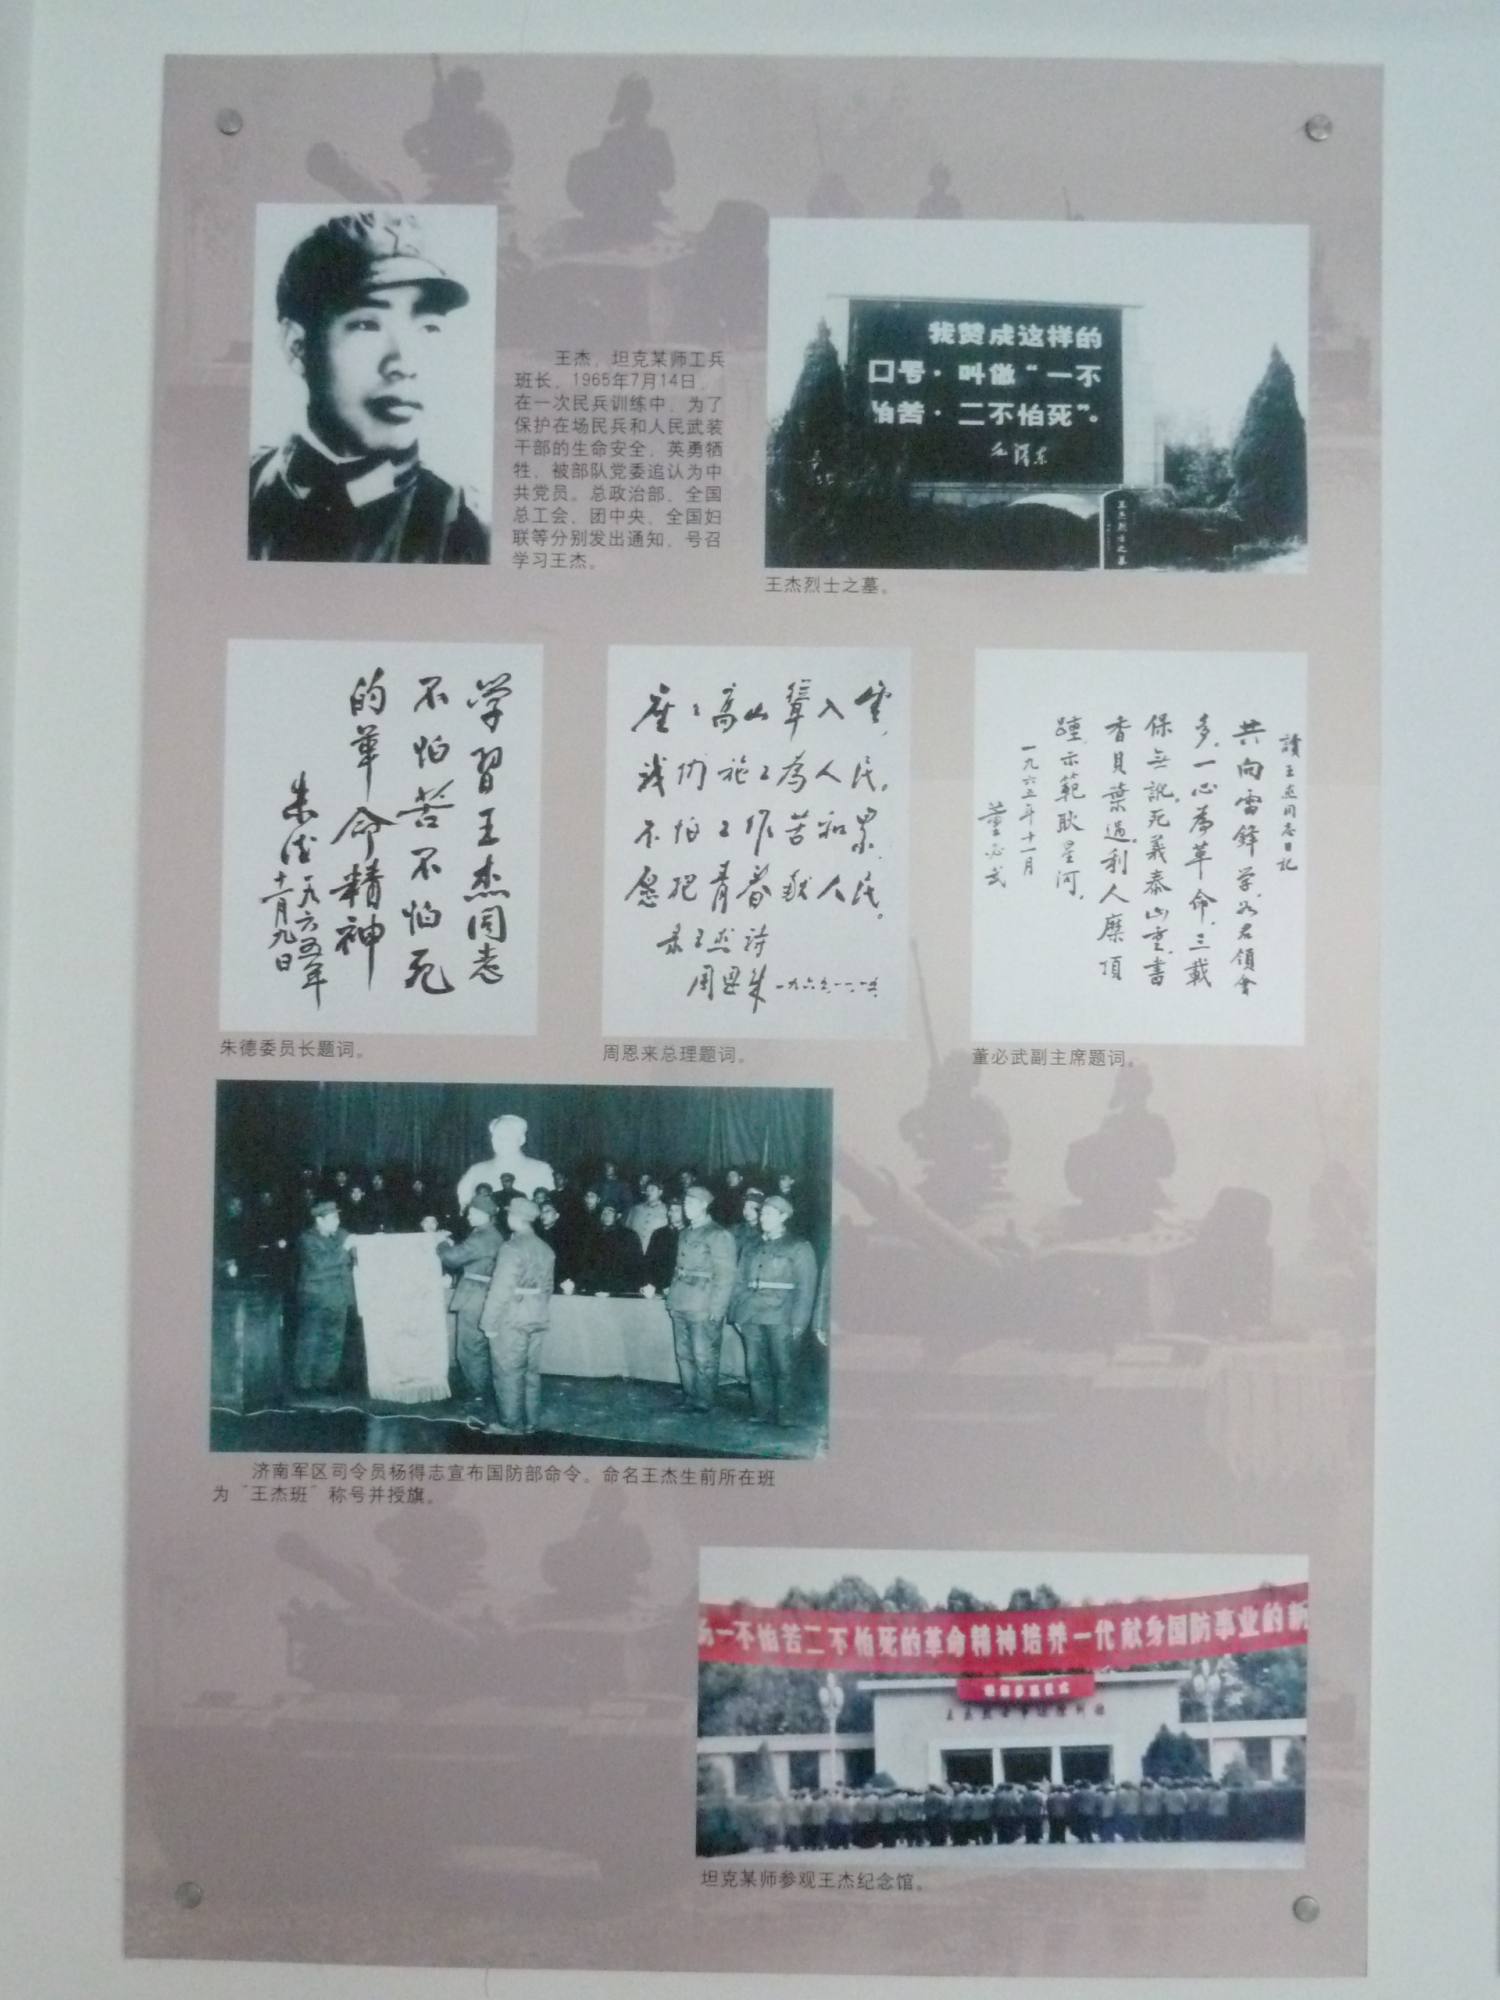 王杰，坦克某师工兵
班长，1965年7月14日，
在一次民兵训练中，为了
保护在场民兵和人民武装
干部的生命安全，英勇牺
牲，被部队党委追认为中
共党员。总政治部、全国
总工会、团中央、全国妇
联等分别发出通知，号召
学习王杰。
我赞成这样的
口号，叫做“一不
怕苦，二不怕死”。
毛泽东
王杰烈士之墓
王杰烈士之墓。
学習王杰同志
不怕苦不怕死
的革命精神
朱德
一九六五年
十一月九日
朱德委员长题词。
座座高山耸入云，
我们施工为人民。
不怕工作苦和累，
愿把青春献人民。
录王杰诗
周恩来
周恩来总理题词。
讀王杰同志日记
共向雷鋒学，君領會
多，一心為革命，三載
保無訛。死義泰山重，書
香貝葉過。利人糜頂
踵，示範耿星河。
一九六五年十一月
董必武
董必武副主席题词。
济南军区司令员杨得志宣布国防部命令，命名王杰生前所在班
为“王杰班”称号并授旗。
一不怕苦二不怕死的革命精神培养一代献身国防事业的新
坦克某师参观王杰纪念馆。